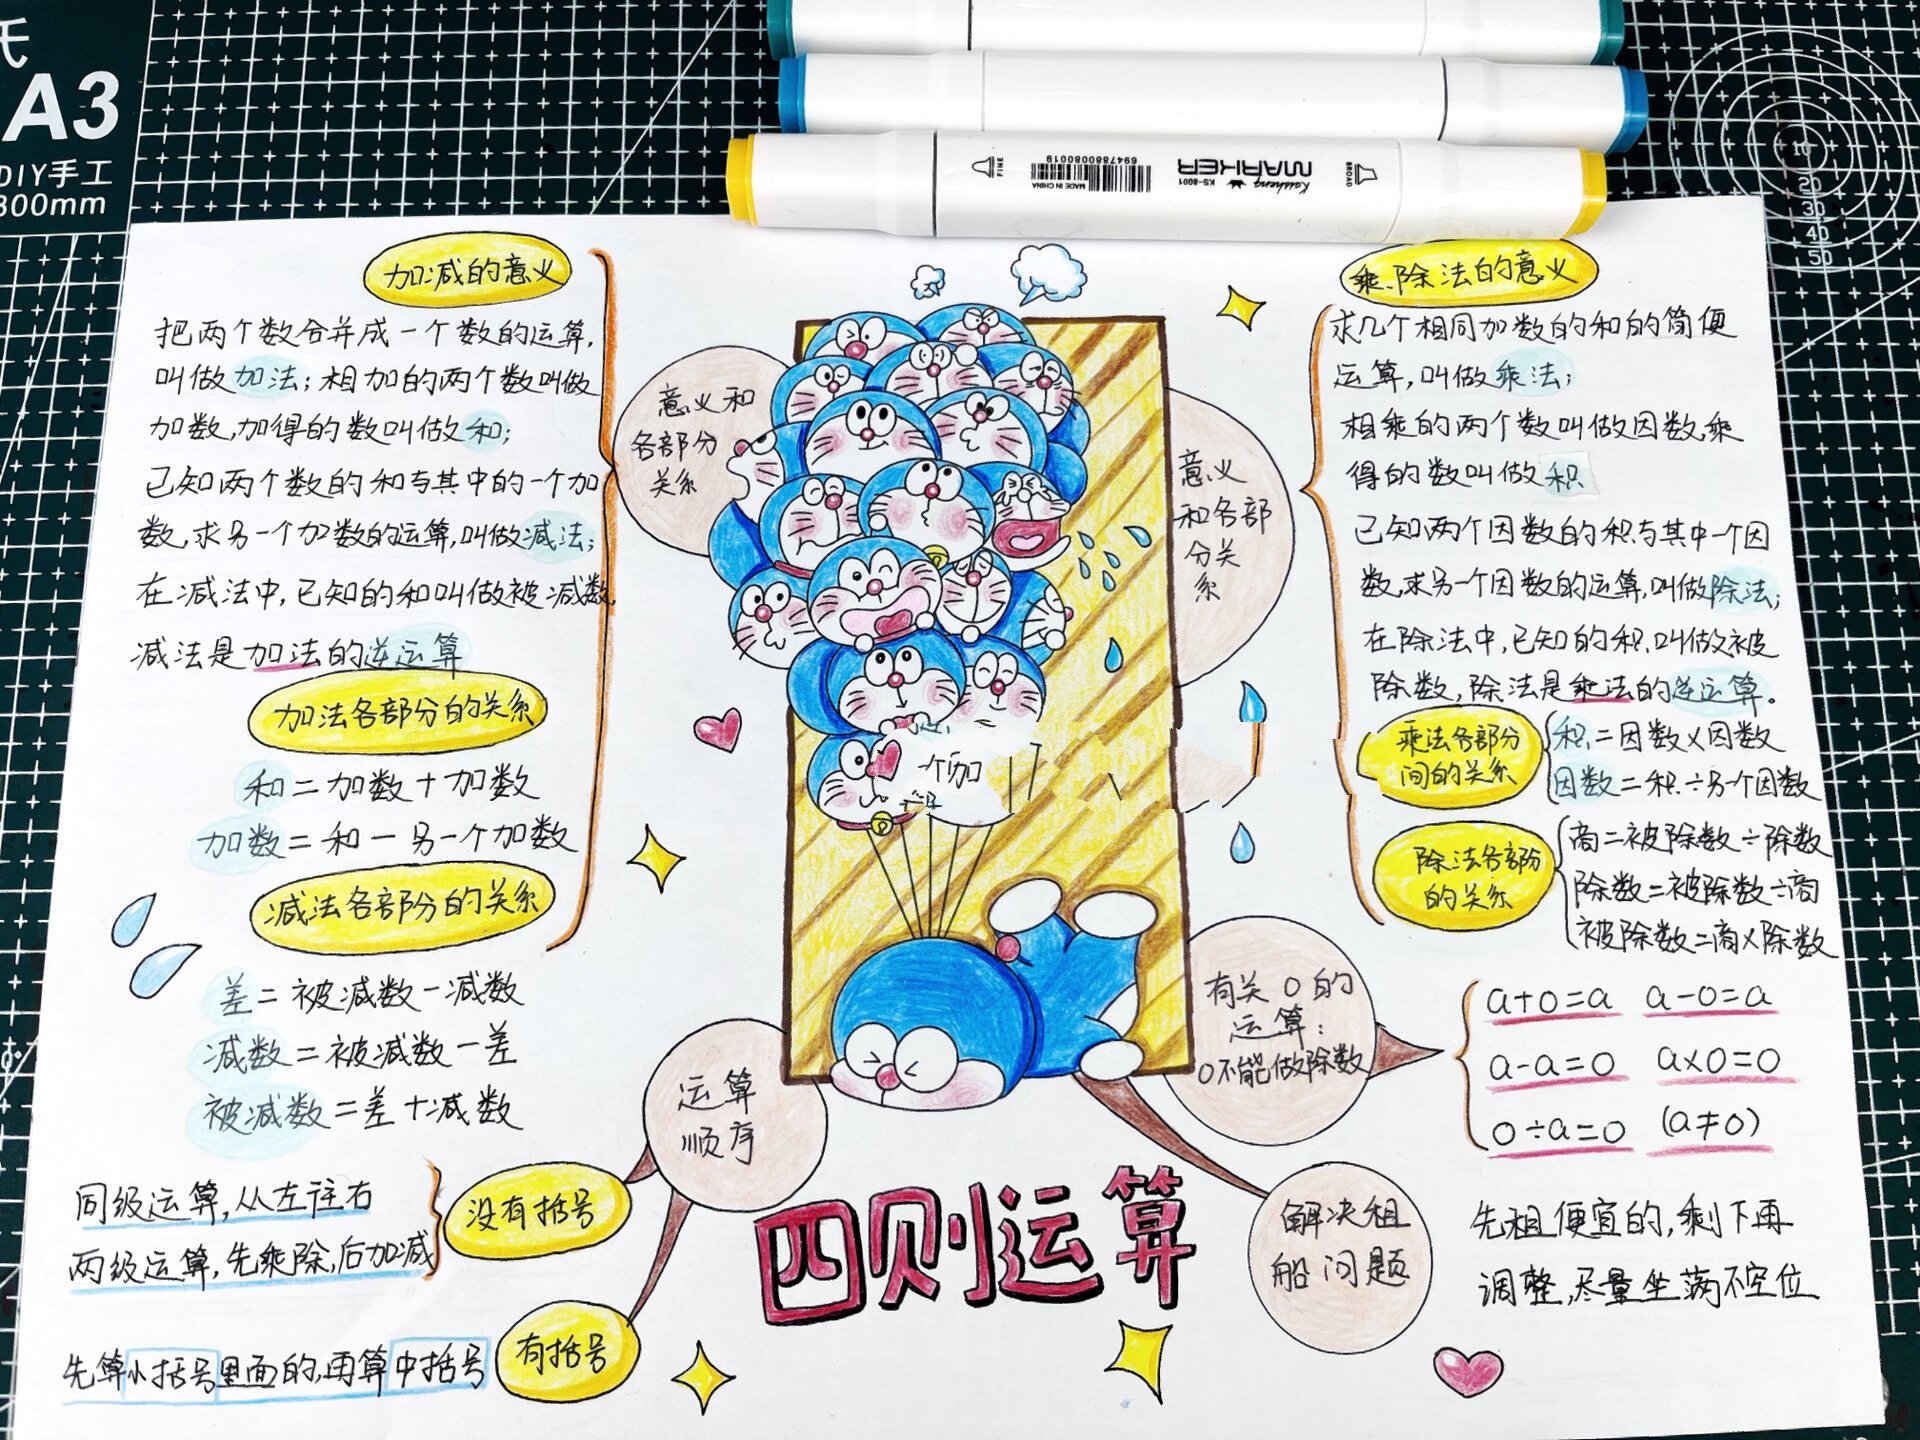 氏
A3
DIY手工
300mm
FINE
6947880080019
MADE IN CHINA
MARKER
KS-8001
BROAD
10
20
30
40
50
加减的意义
把两个数合并成一个数的运算,
叫做加法;相加的两个数叫做
加数,加得的数叫做和;
已知两个数的和与其中的一个加
数,求另一个加数的运算,叫做减法;
在减法中,已知的和叫做被减数,
减法是加法的逆运算
加法各部分的关系
和=加数+加数
加数=和-另一个加数
减法各部分的关系
差=被减数-减数
减数=被减数-差
被减数=差+减数
意义和
各部分
关系
一个加
运算
顺序
没有括号
同级运算,从左往右
两级运算,先乘除,后加减
有括号
先算小括号里面的,再算中括号
四则运算
乘、除法的意义
求几个相同加数的和的简便
运算,叫做乘法;
相乘的两个数叫做因数,乘
得的数叫做积
已知两个因数的积与其中一个因
数,求另一个因数的运算,叫做除法;
在除法中,已知的积,叫做被
除数,除法是乘法的逆运算。
意义
和各部
分关
系
乘法各部分
间的关系
积=因数×因数
因数=积÷另一个因数
除法各部分
的关系
商=被除数÷除数
除数=被除数÷商
被除数=商×除数
有关0的
运算:
0不能做除数
a+0=a a-0=a
a-a=0 a×0=0
0÷a=0 (a≠0)
解决租
船问题
先租便宜的,剩下再
调整,尽量坐满不空位